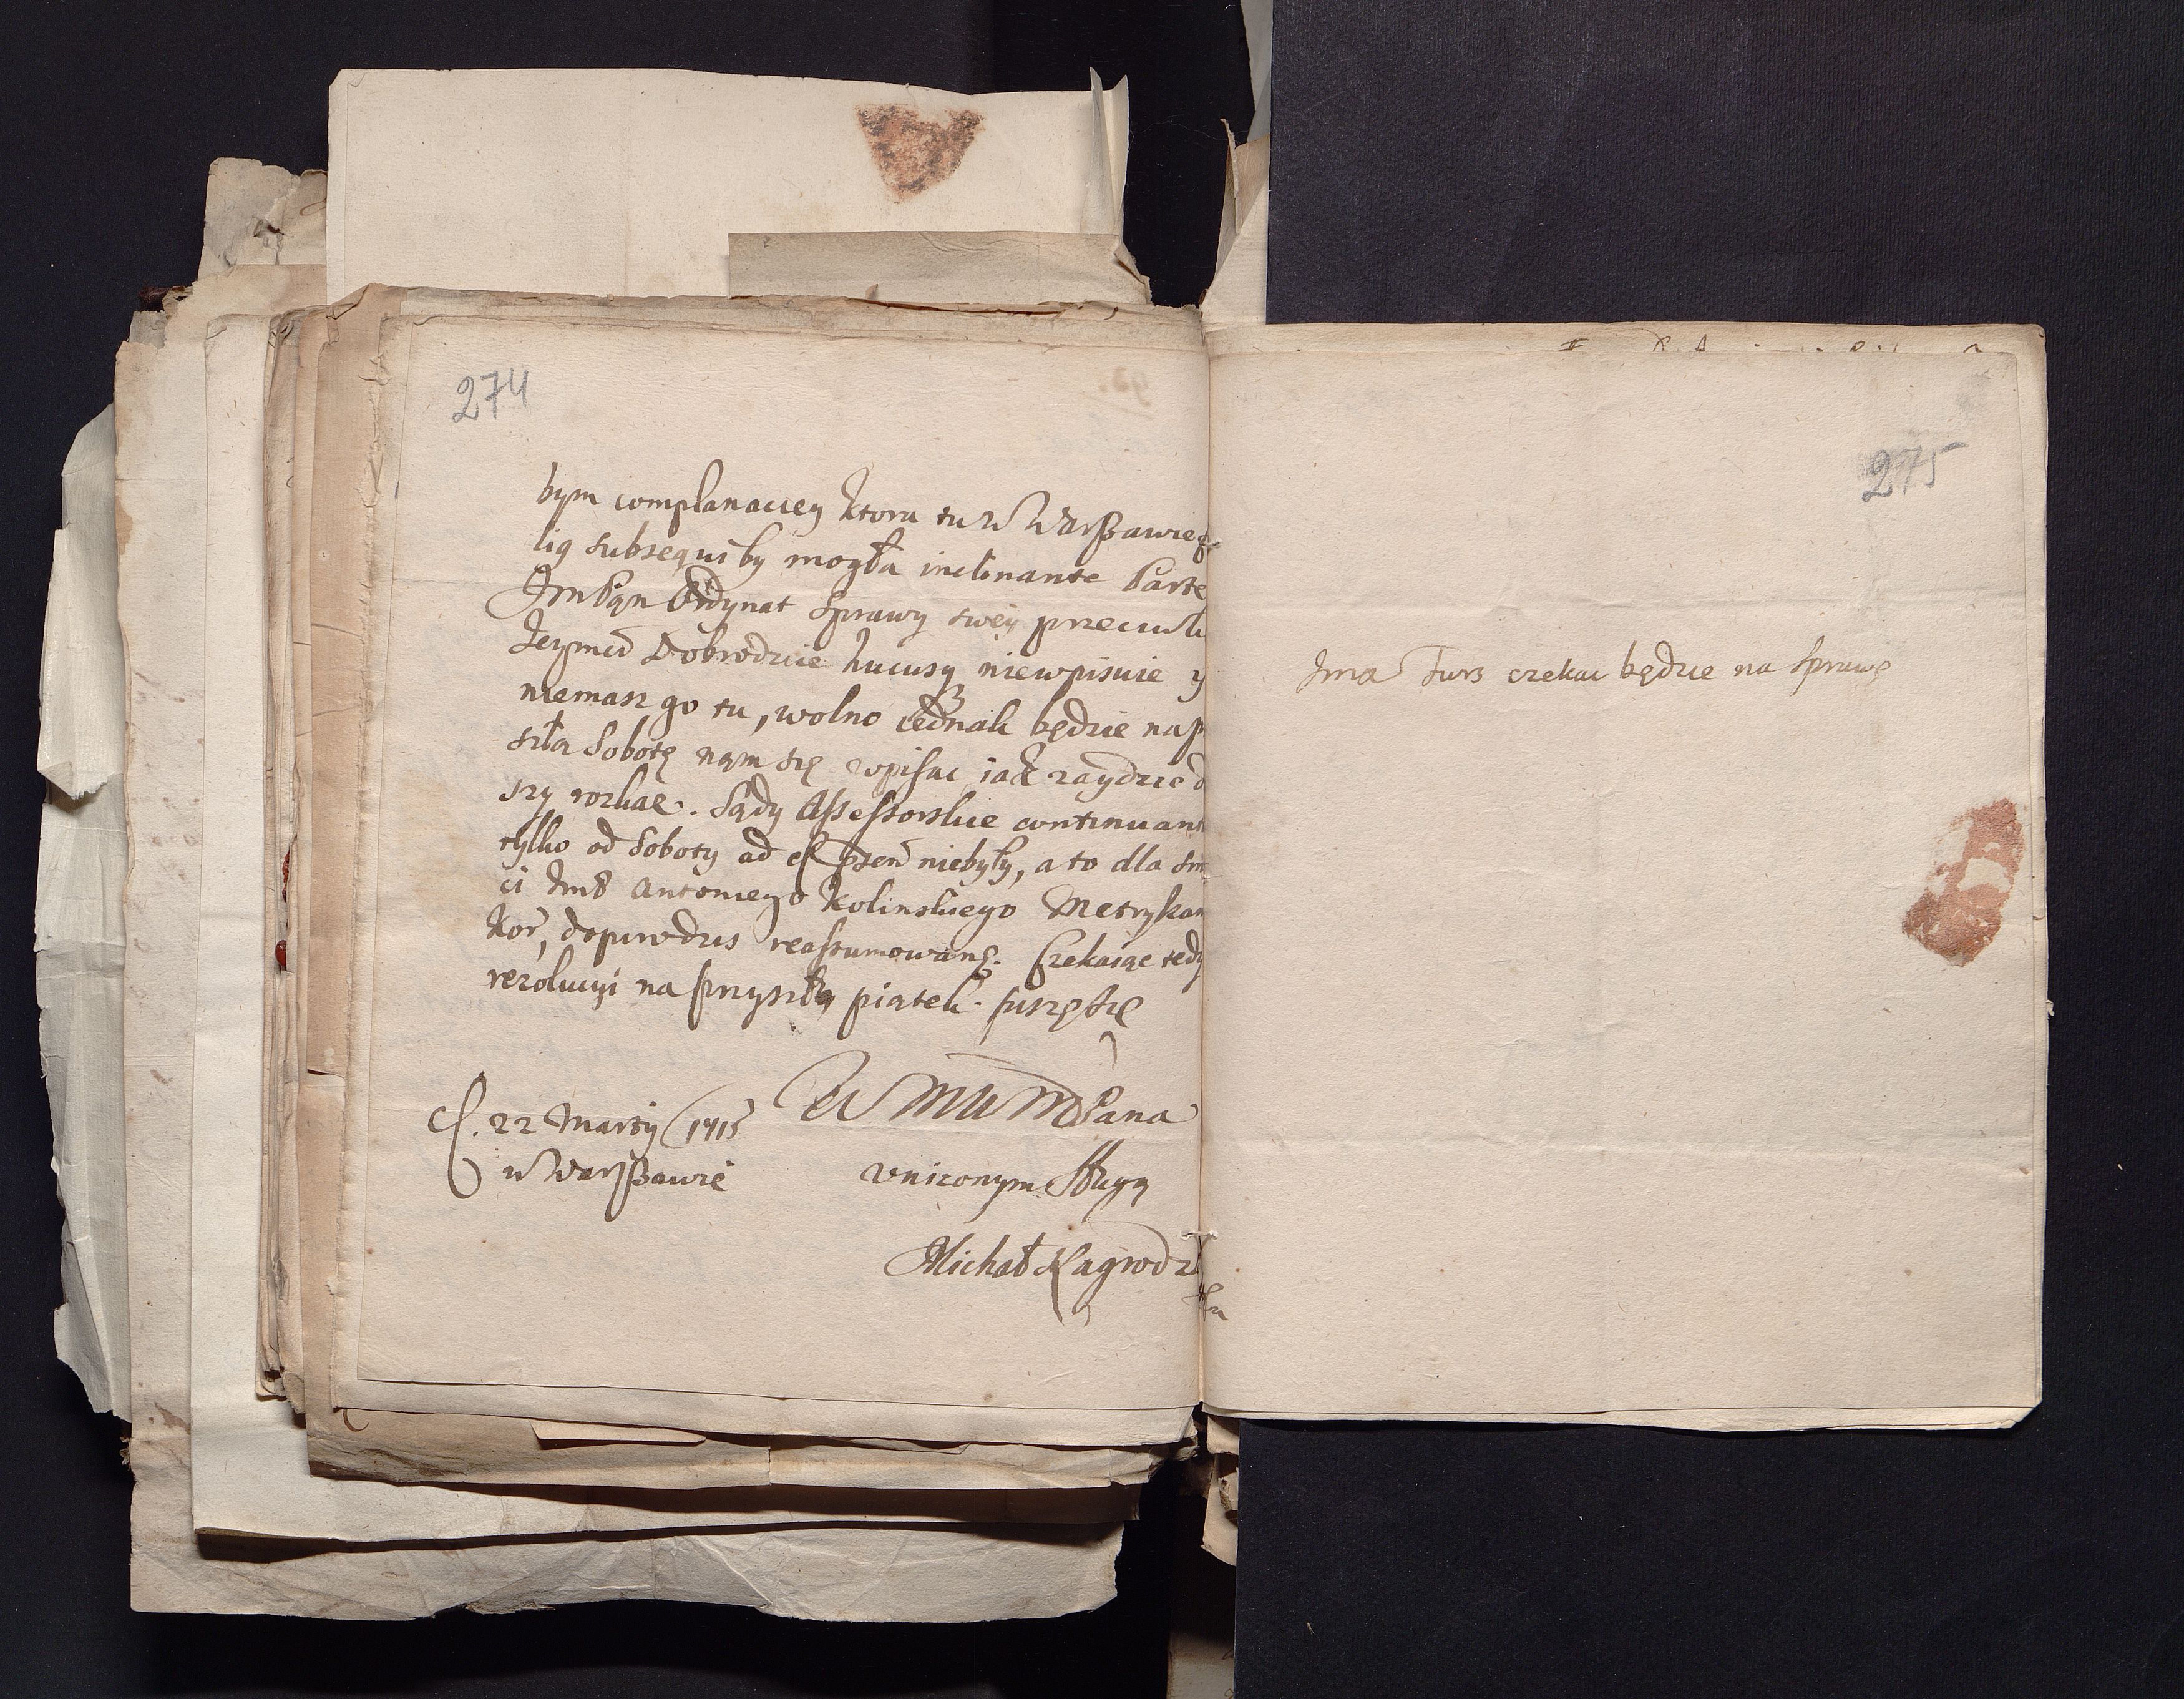 274
bym complanaciey ktora tu w Warszawie
lig subsequi by mogła inclinante Parte
Jm Pan Ordynat Sprawy swey przeciwk
Jeymci Dobrodzice hucusq niewpisuie y
niemasz go tu, wolno iednak będzie na p
szła Sobotę nam się wpisac, iak zaydzie d
szy rozkaz. Sądy Assessorskie continuant
tylko od Soboty ad psen niebyły, a to dla sm
ci Jmś Antoniego Kolinskiego Metrykan
Kor, dopiro dzis reassumowane. Czekaiąc tedy
rezolucyi na przyszły piątek piszę się
22 Martij 1715
w Warszawie
WM MM Pana
uniżonym Sługą
Michał Nagrodzk
275
Jma Turs czekac będzie na Sprawę